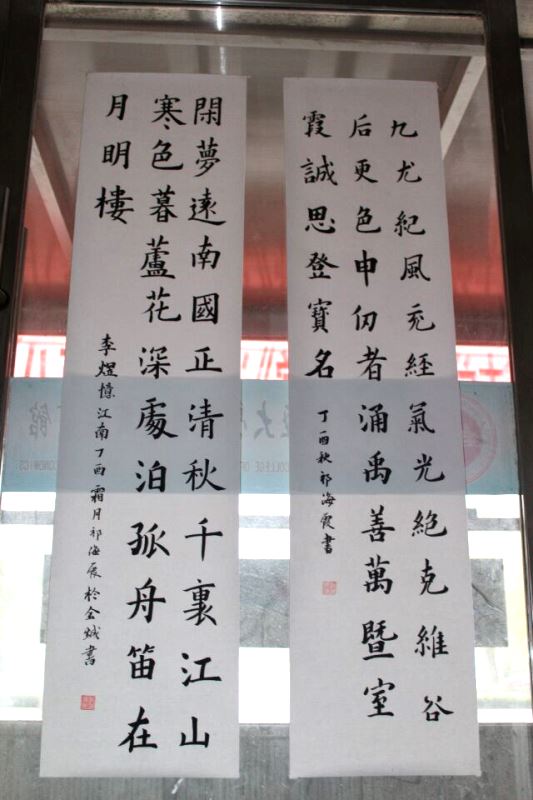 九尤紀風充経氣光絕克維谷
后更色申仞者涌禹善萬暨室
霞誠思登寶名
丁酉秋祁海霞書
閑夢遠南國正清秋千裏江山
寒色暮蘆花深處泊孤舟笛在
月明樓
李煜憶江南丁酉霜月祁海霞於金城書
COLLEGE